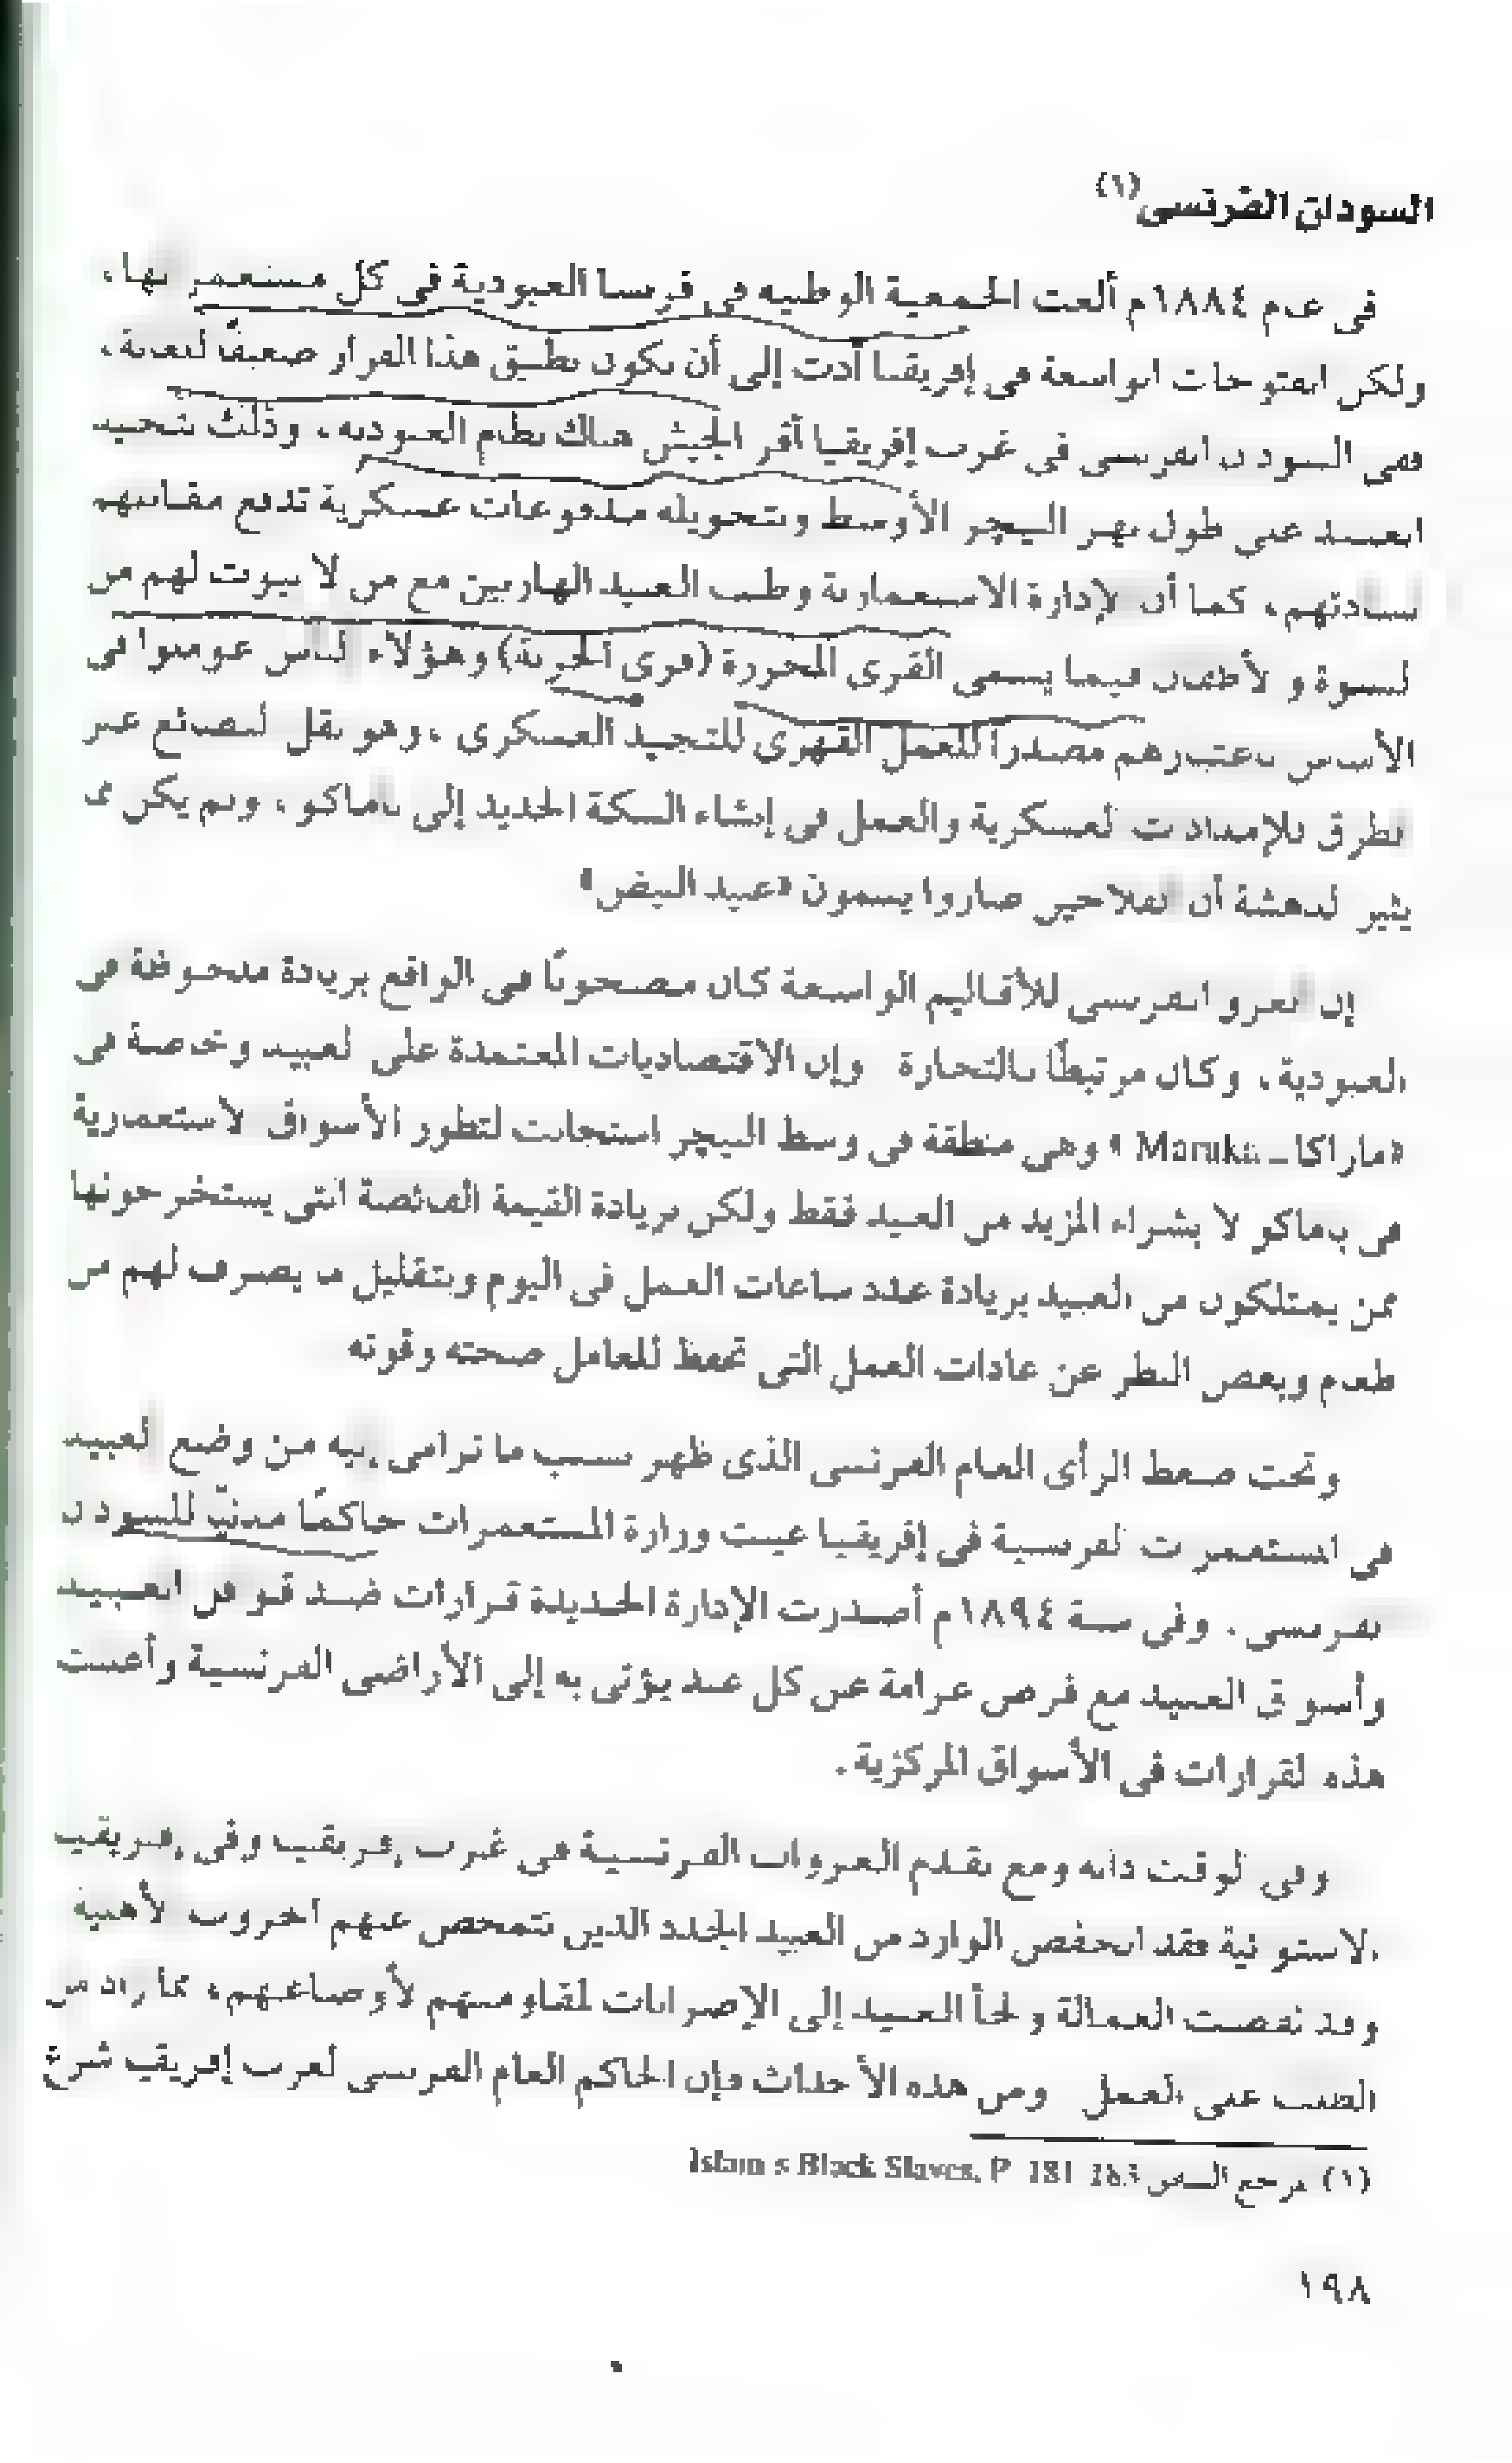 السودان الفرنسى(١)
فى عام ١٨٨٤م ألغت الجمعية الوطنية فى فرنسا العبودية فى كل مستعمراتها،
ولكن الفتوحات الواسعة فى إفريقيا أدت إلى أن يكون تطبيق هذا القرار ضعيفًا للغاية،
ففى السودان الفرنسى فى غرب إفريقيا أقر الجيش هناك نظام العبودية، وذلك بتجنيد
العبيد على طول نهر النيجر الأوسط وبتحويله مدفوعات عسكرية تدفع مقابلهم
لسادتهم، كما أن الإدارة الاستعمارية وطنت العبيد الهاربين مع من لا بيوت لهم من
النسوة والأطفال فيما يسمى القرى المحررة (قرى الحرية) وهؤلاء الناس عوملوا فى
الأساس باعتبارهم مصدراً للعمل القهرى للتجنيد العسكرى، وهو نقل البضائع عبر
الطرق للإمدادات العسكرية والعمل فى إنشاء السكة الحديد إلى باماكو، ولم يكن مما
يثير الدهشة أن الفلاحين صاروا يسمون «عبيد البيض»
إن الغزو الفرنسى للأقاليم الواسعة كان مصحوبًا فى الواقع بزيادة ملحوظة فى
العبودية، وكان مرتبطًا بالتجارة وإن الاقتصاديات المعتمدة على العبيد وخاصة فى
«ماراكا ـ Maruka» وهى منطقة فى وسط النيجر استجابت لتطور الأسواق الاستعمارية
فى باماكو لا بشراء المزيد من العبيد فقط ولكن بزيادة القيمة الفائضة التى يستخرجونها
ممن يمتلكون من العبيد بزيادة عدد ساعات العمل فى اليوم وبتقليل ما يصرف لهم من
طعام وبغض النظر عن عادات العمل التى تحفظ للعامل صحته وقوته
وتحت ضغط الرأى العام الفرنسى الذى ظهر بسبب ما ترامى إليه من وضع العبيد
فى المستعمرات الفرنسية فى إفريقيا عينت وزارة المستعمرات حاكمًا مدنيًا للسودان
الفرنسى، وفى سنة ١٨٩٤م أصدرت الإدارة الجديدة قرارات ضد قوافل العبيد
وأسواق العبيد مع فرض غرامة عن كل عبد يؤتى به إلى الأراضى الفرنسية وأعلنت
هذه القرارات فى الأسواق المركزية.
وفى الوقت ذاته ومع تقدم الغزوات الفرنسية فى غرب إفريقيا وفى إفريقيا
الاستوائية فقد انخفض الوارد من العبيد الجدد الذين تتمخض عنهم الحروب الأهلية
وقد نقصت العمالة ولجأ العبيد إلى الإضرابات لمقاومتهم لأوضاعهم، مما زاد من
الطلب على العمل ومن هذه الأحداث فإن الحاكم العام الفرنسى لغرب إفريقيا شرع
(١) مرجع السابق Islam s Black Slaves, P 181 183
١٩٨